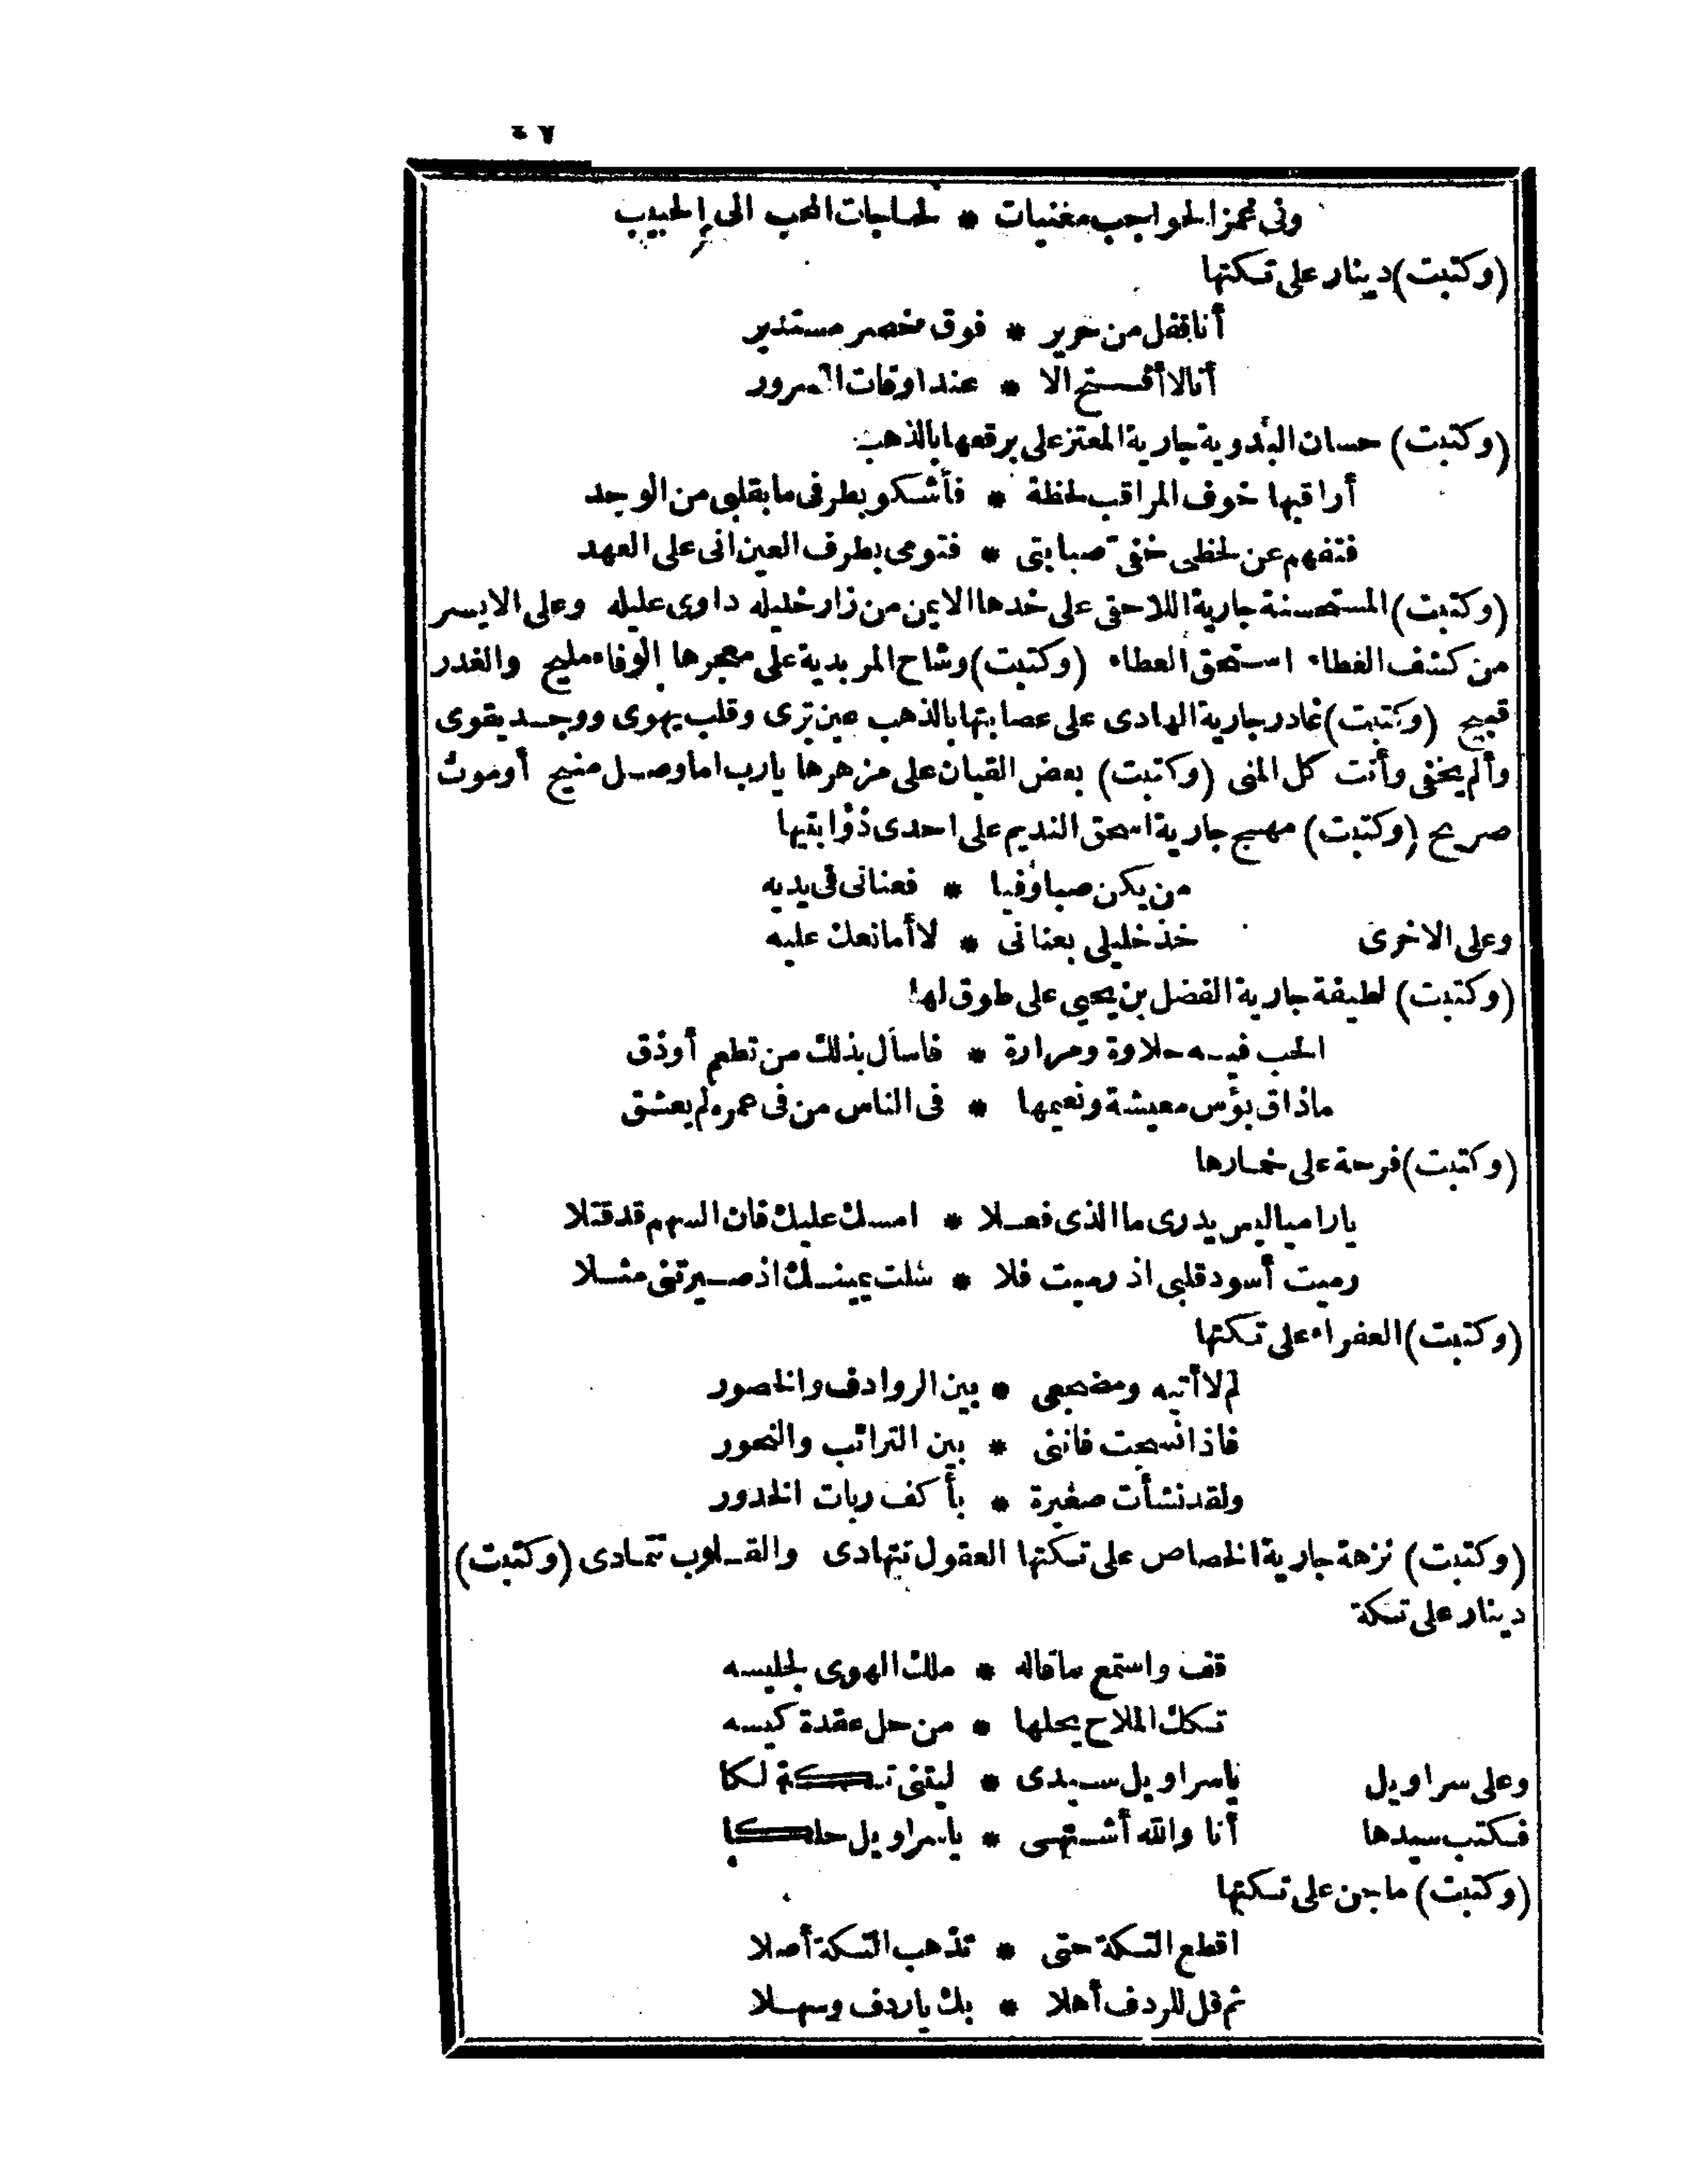 ٤٧
وفى غمز الحواجب مغنيات * لحاجات المحب الى الحبيب
(وكتبت) دينار على تكتها
أنا قفل من حرير * فوق خصر مستدير
أنا لا أفتح الا * عند اوقات السرور
(وكتبت) حسان البدوية جارية المعتز على برقعها بالذهب
أراقبها خوف المراقب لحظة * فأشكو بطرفى ما بقلبى من الوجد
فتفهم عن لحظى خفى صبابتى * فتومى بطرف العين انى على العهد
(وكتبت) المستحسنة جارية اللاحقى على خدها الايمن من زار خليله داوى عليله وعلى الايسر
من كشف الغطاء استحق العطاء (وكتبت) وشاح المريدية على معجرها الوفاء مليح والغدر
قبيح (وكتبت) غادر جارية الهادى على عصابتها بالذهب عين ترى وقلب يهوى ووجد يقوى
وألم يخفى وأنت كل المنى (وكتبت) بعض القيان على مزهرها يارب اما وصل منيح أو موت
صريح (وكتبت) مهج جارية اسحق النديم على احدى ذؤابتيها
من يكن صبا وفيا * فعنانى فى يديه
وعلى الاخرى خذ خليلى بعنانى * لا أمانعك عليه
(وكتبت) لطيفة جارية الفضل بن يحيى على طوق لها
الحب فيه حلاوة ومرارة * فاسأل بذلك من تطعم أو ذق
ماذاق بؤس معيشة ونعيمها * فى الناس من فى عمره لم يعشق
(وكتبت) فرحة على خمارها
ياراميا ليس يدرى ما الذى فعلا * امسك عليك فان السهم قد قتلا
رميت أسود قلبى اذ رميت فلا * شلت يمينك اذ صيرتنى مثلا
(وكتبت) العفراء على تكتها
لم لا أتيه ومضجعى * بين الروادف والخصور
فاذا نسجت فاننى * بين الترائب والنحور
ولقد نشأت صغيرة * بأكف ربات الخدور
(وكتبت) نزهة جارية الخصاص على تكتها العقول تتهادى والقلوب تتمادى (وكتبت)
دينار على تكة
قف واستمع ما قاله * ملك الهوى لجليسه
تكك الملاح يحلها * من حل عقدة كيسه
وعلى سراويل ياسراويل سيدى * ليتنى تكة لكا
فكتب سيدها أنا والله أشتهى * ياسراويل حلكا
(وكتبت) ماجن على تكتها
اقطع التكة حتى * تذهب التكة أصلا
ثم قل للردف أهلا * بك ياردف وسهلا